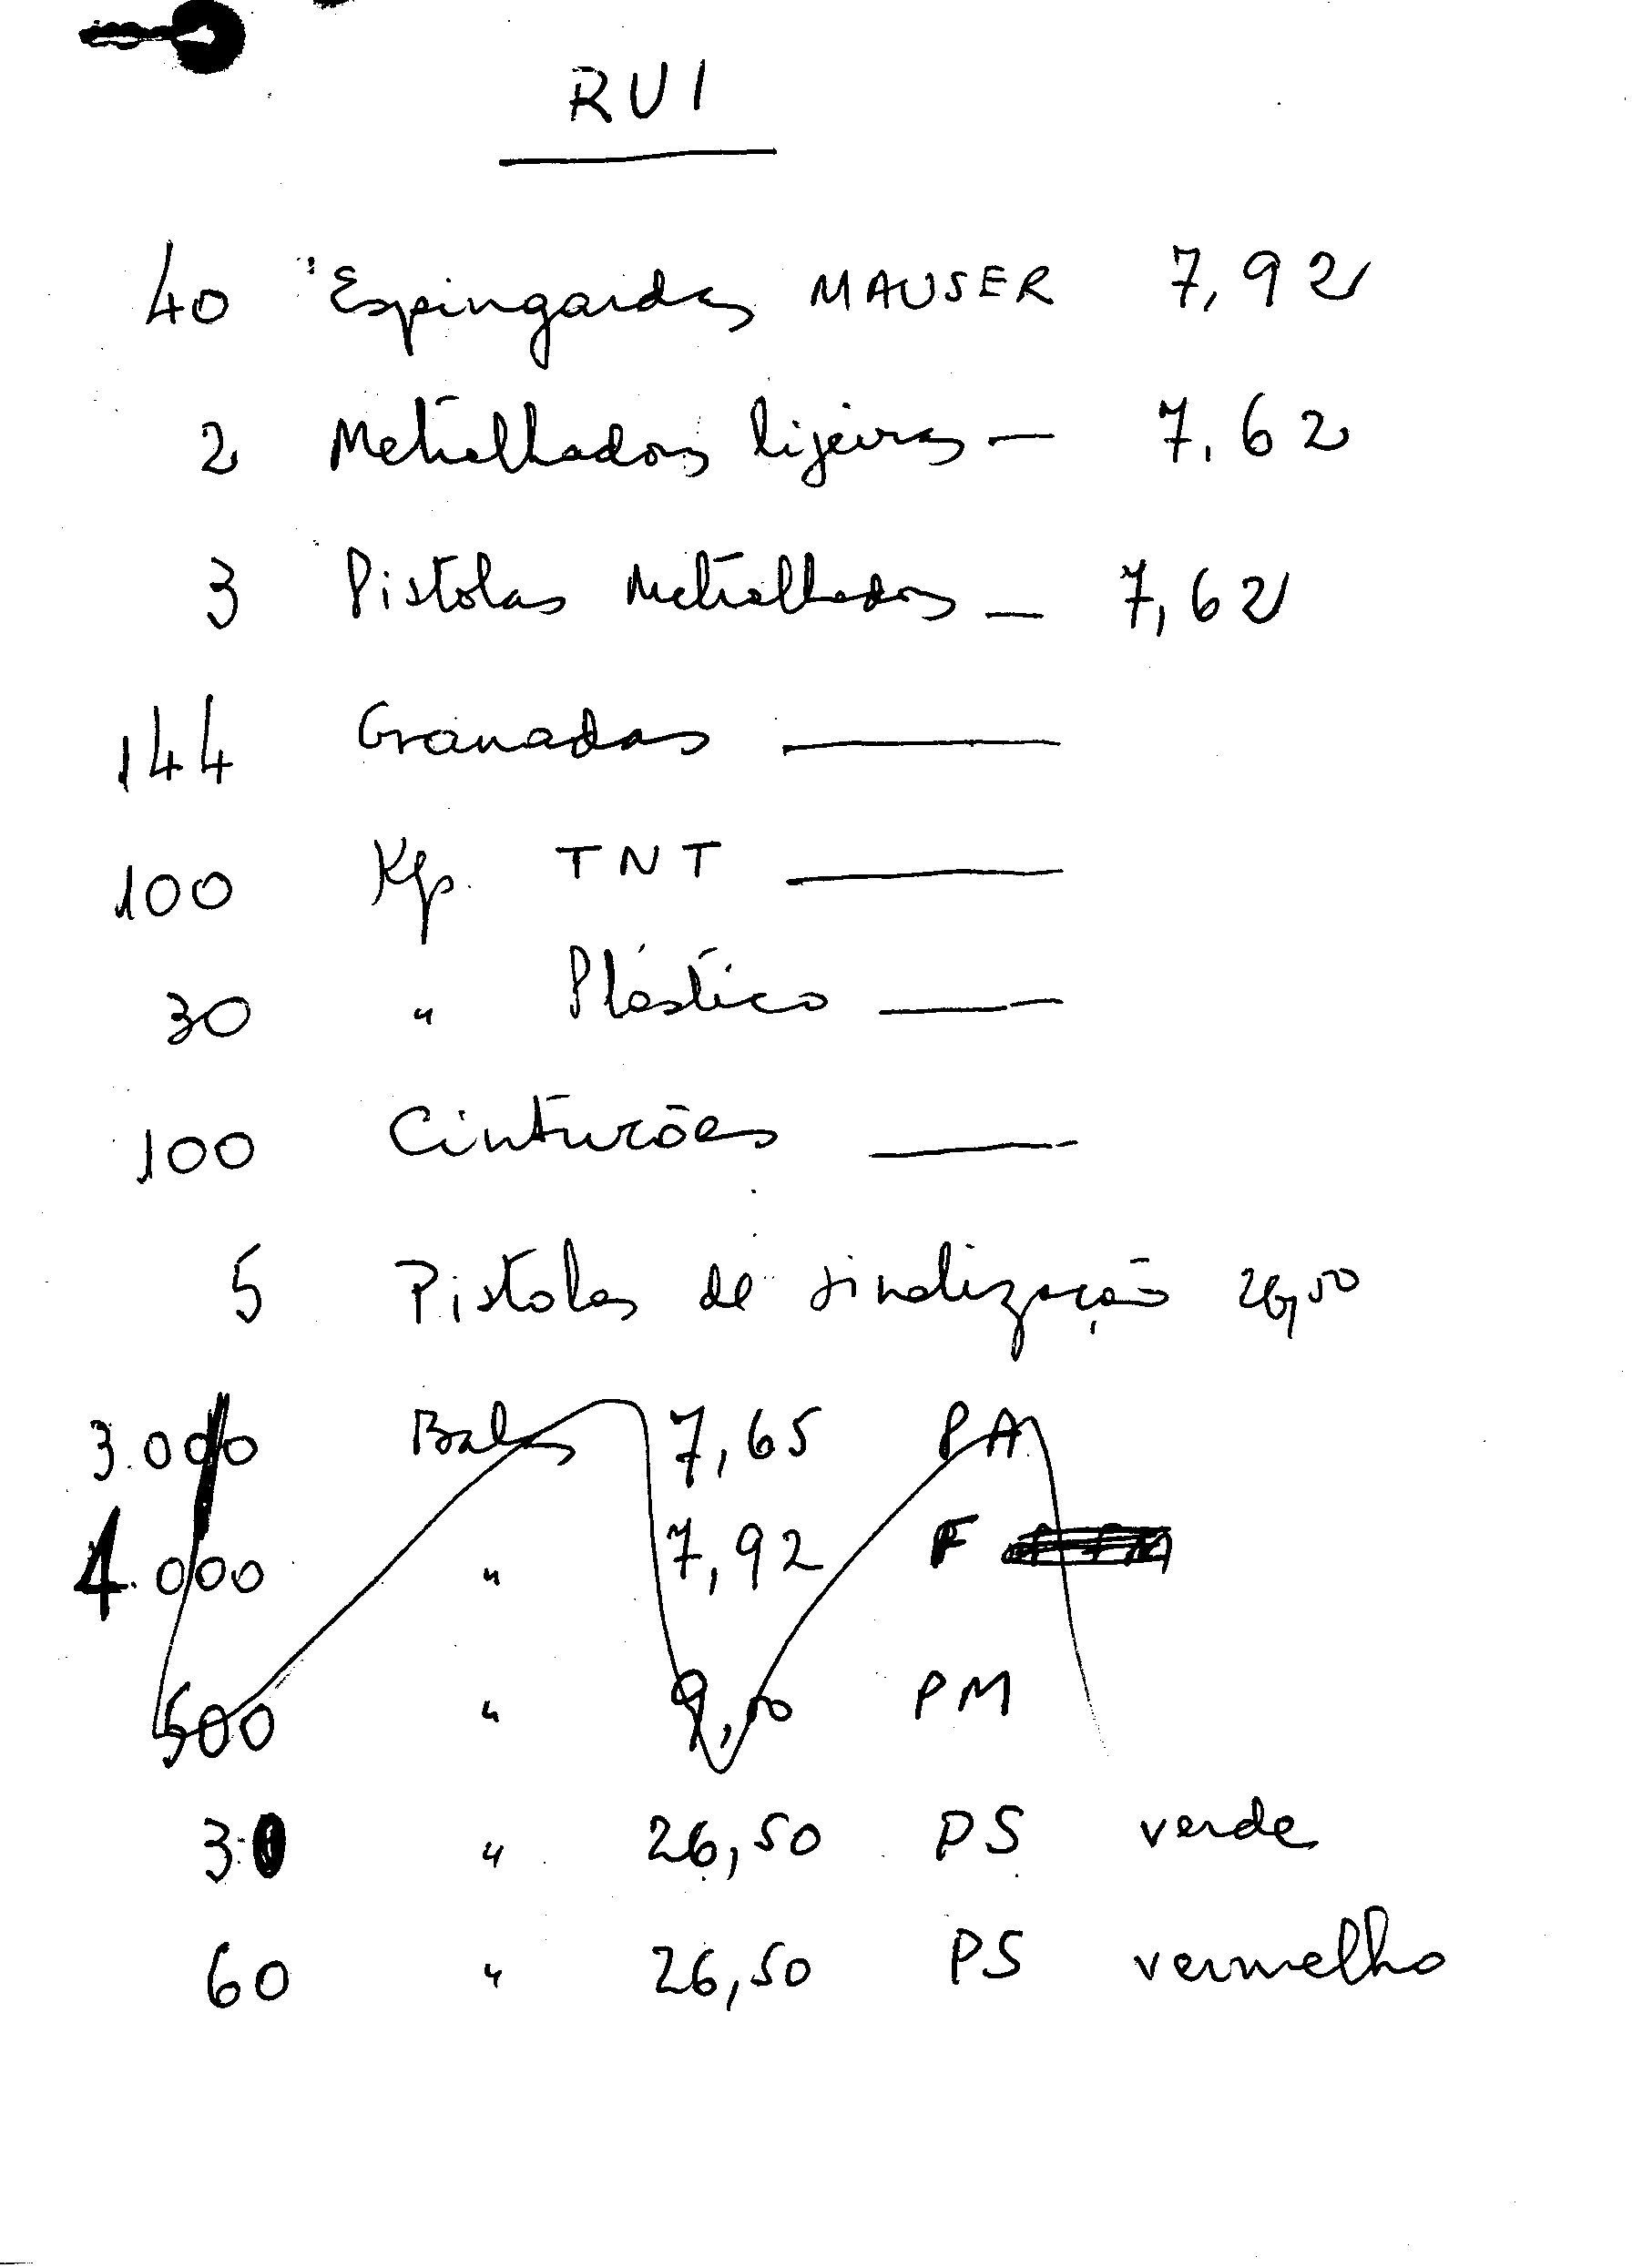 RUI
40 Espingardas MAUSER 7,92
2 Metralhadoras lijeiras — 7,62
3 Pistolas Metralhadoras — 7,62
144 Granadas —
100 Kg. TNT —
30 " Plástico —
100 Cinturões —
5 Pistolas de sinalização 26,50
3.000 Balas 7,65 PA
4.000 " 7,92 F
500 " 9,00 PM
30 " 26,50 PS verde
60 " 26,50 PS vermelho